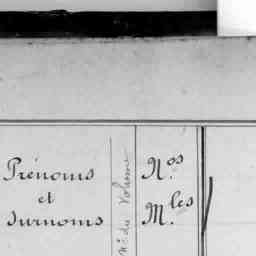 Prénoms
et
Surnoms
N° du Volume
N.os
M.les